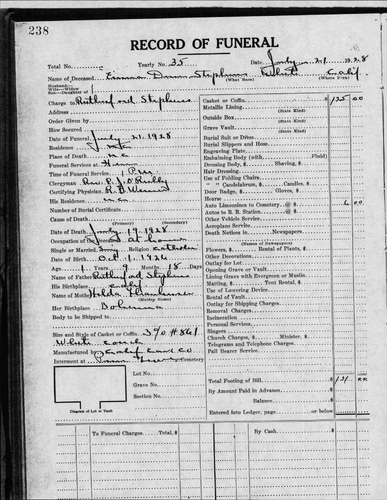 238
RECORD OF FUNERAL
Total No. Yearly No. 35 Date July 21 1928
Name of Deceased Stephens White Calif.
(What Race) (Where Born)
Husband
Wife—Widow
Son—Daughter of
Charge to Rutherford Stephens
Address
Order Given by
How Secured
Date of Funeral July 21, 1928
Residence
Place of Death
Funeral Services at Home
Time of Funeral Service 1 P.M.
Clergyman Rev. P. J. O'Reilly
Certifying Physician
His Residence
Number of Burial Certificate
Cause of Death
(Primary) (Secondary)
Date of Death July 19 1928
Occupation of the Deceased at home
Single or Married Religion
Date of Birth Oct 1 1926
Age 1 Years 9 Months 18 Days
Name of Father Rutherford Stephens
His Birthplace Calif
Name of Mother Hilda
(Maiden Name)
Her Birthplace
Body to be Shipped to
Size and Style of Casket or Coffin 3/0 #861
White couch
Manufactured by Calif Casket Co
Interment at Cemetery
Lot No.
Grave No.
Section No.
Diagram of Lot or Vault
Casket or Coffin $ 125 00
Metallic Lining
(State Kind)
Outside Box
(State Kind)
Grave Vault
(State Kind)
Burial Suit or Dress
Burial Slippers and Hose
Engraving Plate
Embalming Body (with Fluid)
Dressing Body, $ Shaving, $
Hair Dressing
Use of Folding Chairs
" " Candelabrum, $ Candles, $
Door Badge, $ Gloves, $
Hearse
Auto Limousines to Cemetery @ $ 6 00
Autos to R. R. Station @ $
Other Vehicle Service
Aeroplane Service
Death Notices in Newspapers
(Names of Newspapers)
Flowers, $ Rental of Plants, $
Other Decorations
Outlay for Lot
Opening Grave or Vault
Lining Grave with Evergreen or Muslin
Matting, $ Tent Rental, $
Use of Lowering Device
Rental of Vault
Outlay for Shipping Charges
Removal Charges
Incineration
Personal Services
Singers
Church Charges, $ Minister, $
Telegrams and Telephone Charges
Pall Bearer Service
Total Footing of Bill $ 131 00
By Amount Paid in Advance
Balance
Entered into Ledger, page or below
To Funeral Charges Total, $ By Cash $